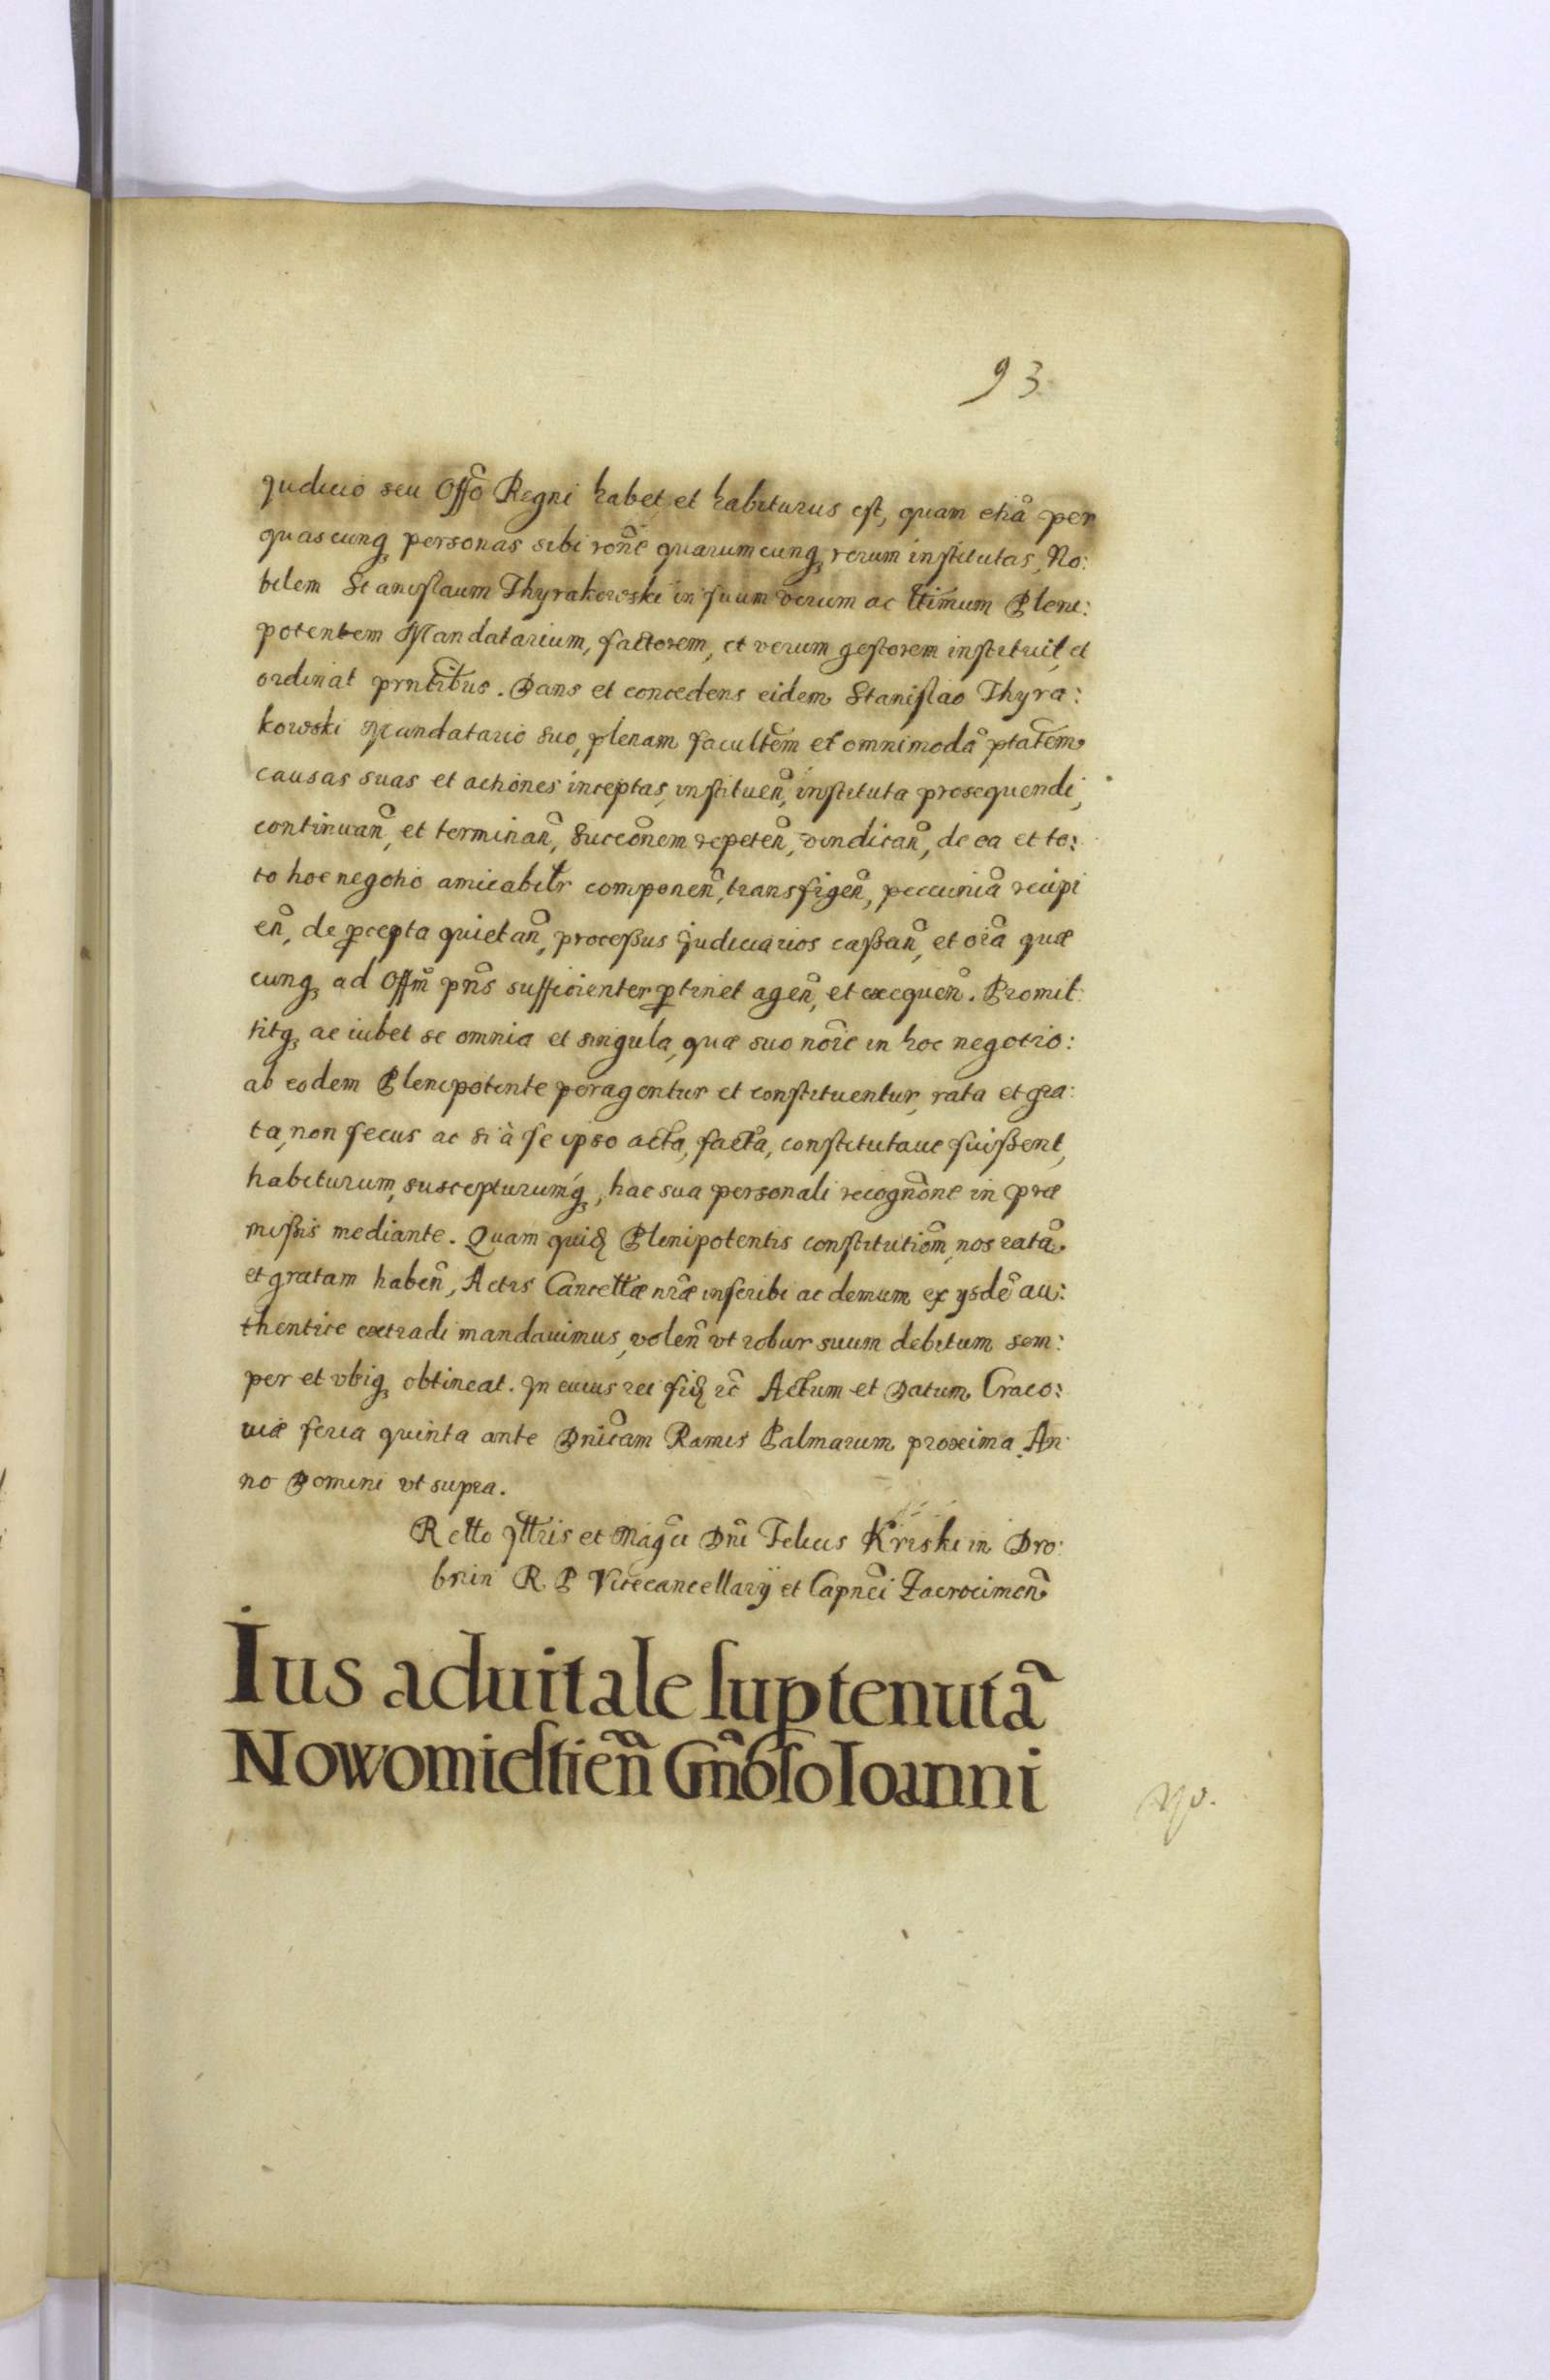 93
Judicio seu Offõ Regni habet et habiturus est, quam etiã per
quascunq personas sibi rõne quarumcunq rerum institutas, No:
bilem Stanislaum Thyrakowski in suum verum ac lttimum Pleni:
potentem Mandatarium, factorem, et verum gestorem instituit, et
ordinat prntibus. Dans et concedens eidem Stanislao Thyra:
kowski Mandatario suo, plenam facultem et omnimodã ptatem
causas suas et actiones inceptas, instituen, instituta prosequendi,
continuañ, et terminañ, Succõnem repeteñ, vindicañ, de ea et to:
to hoc negotio amicabiltr componeñ, transfigeñ, peccuniã recipi
eñ, de pcepta quietañ, processus Judiciarios cassañ, et oïa quæ
cunq ad Offm pñs sufficienter ptinet ageñ, et exequeñ. Promit:
titq ac iubet se omnia et singula, quæ suo nõie in hoc negotio:
ab eodem Plenipotente peragentur et constituentur, rata et gra:
ta, non secus ac si à se ipso acta, facta, constitutaue fuissent,
habiturum, suscepturumq, hac sua personali recognõne in præ
missis mediante. Quam quid Plenipotentis constitutiõm, nos ratã
et gratam habeñ, Actis Cancellæ nræ inscribi ac demum ex ysdẽ au:
thentice extradi mandauimus, voleñ vt robur suum debitum sem:
per et vbiq obtineat. In cuius rei fid rc̃ Actum et Datum Craco:
uiæ feria quinta ante Dnicam Ramis Palmarum proxima An
no Domini vt supra.
Rello Jllris et Magci Dni Felicis Kriski in Dro:
bnin R P Vicecancellarij et Capnei Zacrocimeñ
Ius aduitale sup tenutã
Nowomiestieñ Gñoso Ioanni